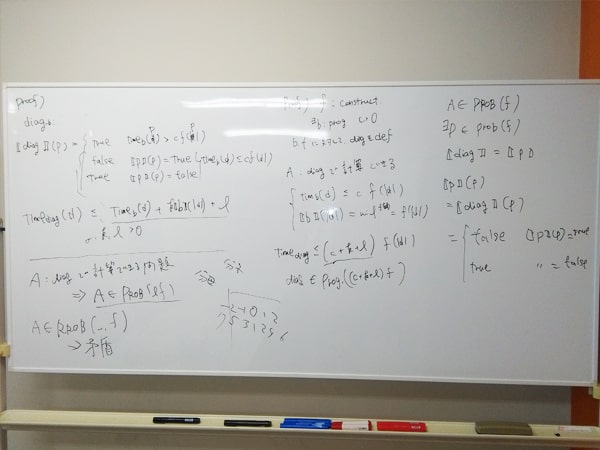 proof)
diag
〚diag〛(p) = { true time_b(p) > c f(|d|)
false 〚p〛(p) = true, time_b(d) ≤ c f(|d|)
true 〚p〛(p) = false
Time diag(d) ≤ Time_b(d) + k〚b〛(|d|) + l
k, l > 0
A : diag で計算できる問題
⇒ A ∈ PROB(lf)
A ∈ PROB(_, f)
→ 矛盾
-2 -1 0 1 2
7 5 3 1 2 4 6
f : construct
∃b : prog ω 0
b, f に対して, diag を def
A : diag で計算できる
{ time_b(d) ≤ c f(|d|)
time diag ≤ (c+k+l) f(|d|)
diag ∈ Prog((c+k+l) f)
A ∈ PROB(f)
∃p ∈ prob(f)
〚diag〛 = 〚p〛
〚p〛(p)
= 〚diag〛(p)
= { false 〚p〛(p) = true
true 〃 = false